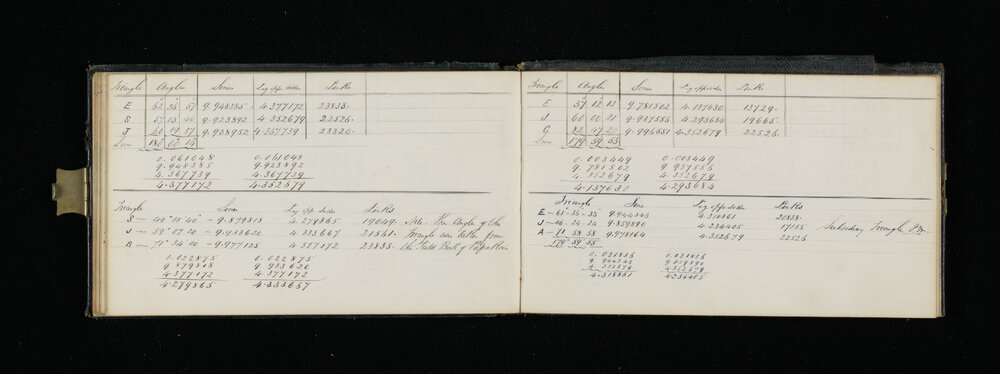 Triangle Angles Sines Log opp. sides Links
E 62 34 57 9.948385 4.377172 23833.
S 57 03 40 9.923892 4.352679 22526.
J 60 19 37 9.938952 4.367739 23320.
Sum 180 00 14
0.061048 0.061048
9.948385 9.923892
4.367739 4.367739
4.377172 4.352679
Triangle Sines Log opp sides Links
S — 49° 18' 40" — 9.879818 4.279865 19049. Note. The Angles of this
J — 59° 07 20 — 9.933620 4.333667 21561. Triangle were taken from
R — 71° 34 00 — 9.977125 4.377172 23833. the Field Book of
0.022875 0.022875
9.879818 9.933620
4.377172 4.377172
4.279865 4.333667
Triangle Angles Sines Log opp. sides Links
E 37 12 12 9.781502 4.137630 13729.
J 60 00 21 9.937556 4.293684 19665.
G 82 47 20 9.996551 4.352679 22526
Sum 179 59 53
0.003449 0.003449
9.781502 9.937556
4.352679 4.352679
4.137630 4.293684
Triangle Sine Log opp sides Links
E — 61-34-33 9.944246 4.318861 20838.
J — 46-24-24 9.859890 4.234405 17155 Subsidiary Triangle
A — 71 58 58 9.978164 4.352679 22526
179 59 55
0.021836 0.021836
9.944246 9.859890
4.352679 4.352679
4.318861 4.234405